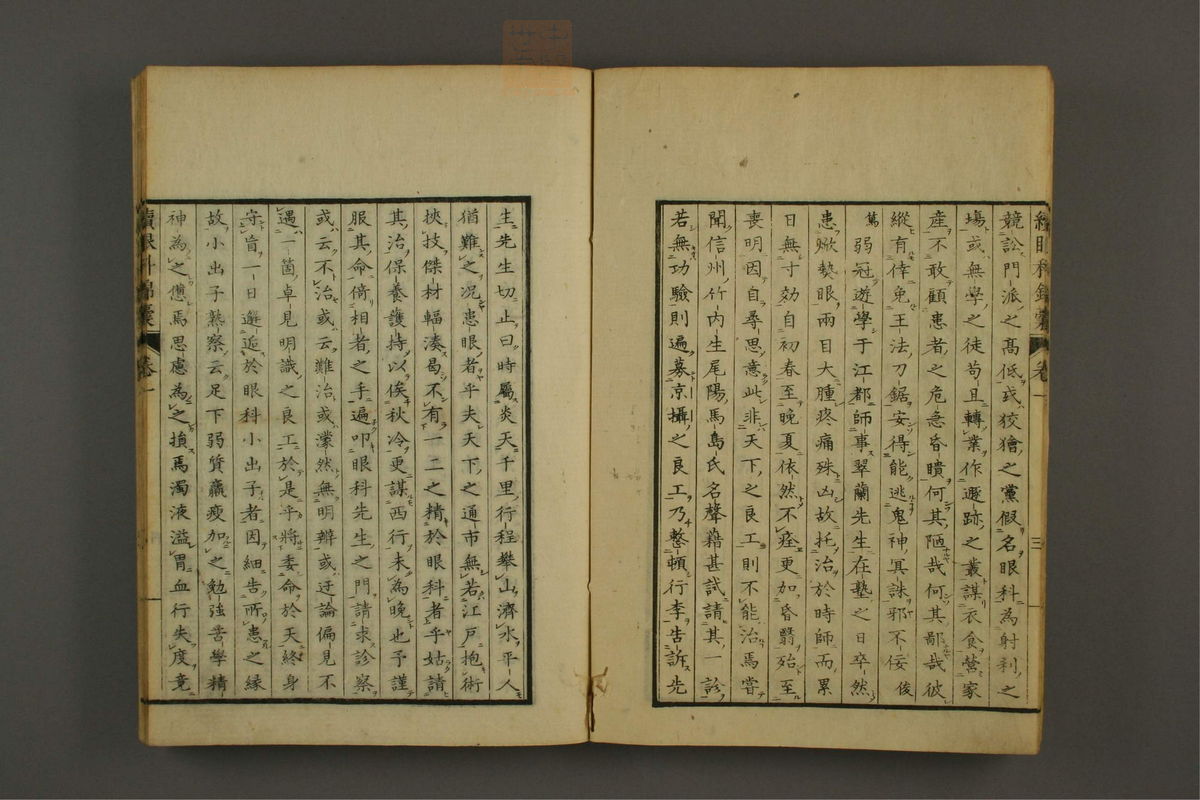 續眼科錦囊 卷一 三
競訟門派之高低或狡獪之黨假名眼科為射利之
塲或無學之徒苟且轉業作遯跡之叢謀衣食營家
產不敢顧患者之危急昏瞶何其陋哉何其鄙哉彼
縱有倖免王法刀鋸安得能逃鬼神冥誅邪不佞俊
篤弱冠遊學于江都師事翠蘭先生在塾之日卒然
患焮熱眼兩目大腫疼痛殊凶故托治於時師而累
日無寸効自初春至晚夏依然不痊更加昏翳殆至
喪明因自尋思意此非天下之良工則不能治焉嘗
聞信州竹内生尾陽馬島氏名聲藉甚試請其一診
若無功驗則遍募京攝之良工乃整頓行李告訴先
生先生切止曰時屬炎天千里行程攀山濟水平人
猶難之况患眼者乎夫天下之通市無若江戸抱術
挾技傑材輻湊曷不有一二之精於眼科者乎姑請
其治保養護持以俟秋冷更謀西行未為晚也予謹
服其命倚相者之手遍叩眼科先生之門請求診察
或云不治或云難治或濛然無明辨或迂論偏見不
遇一箇卓見明識之良工於是乎將委命於天終身
守盲一日邂逅於眼科小出子者因細告所患之緣
故小出子熟察云足下弱質羸瘦加之勉強苦學精
神為之憊焉思慮為之損焉濁液溢胃血行失度竟
續眼科錦囊 卷一